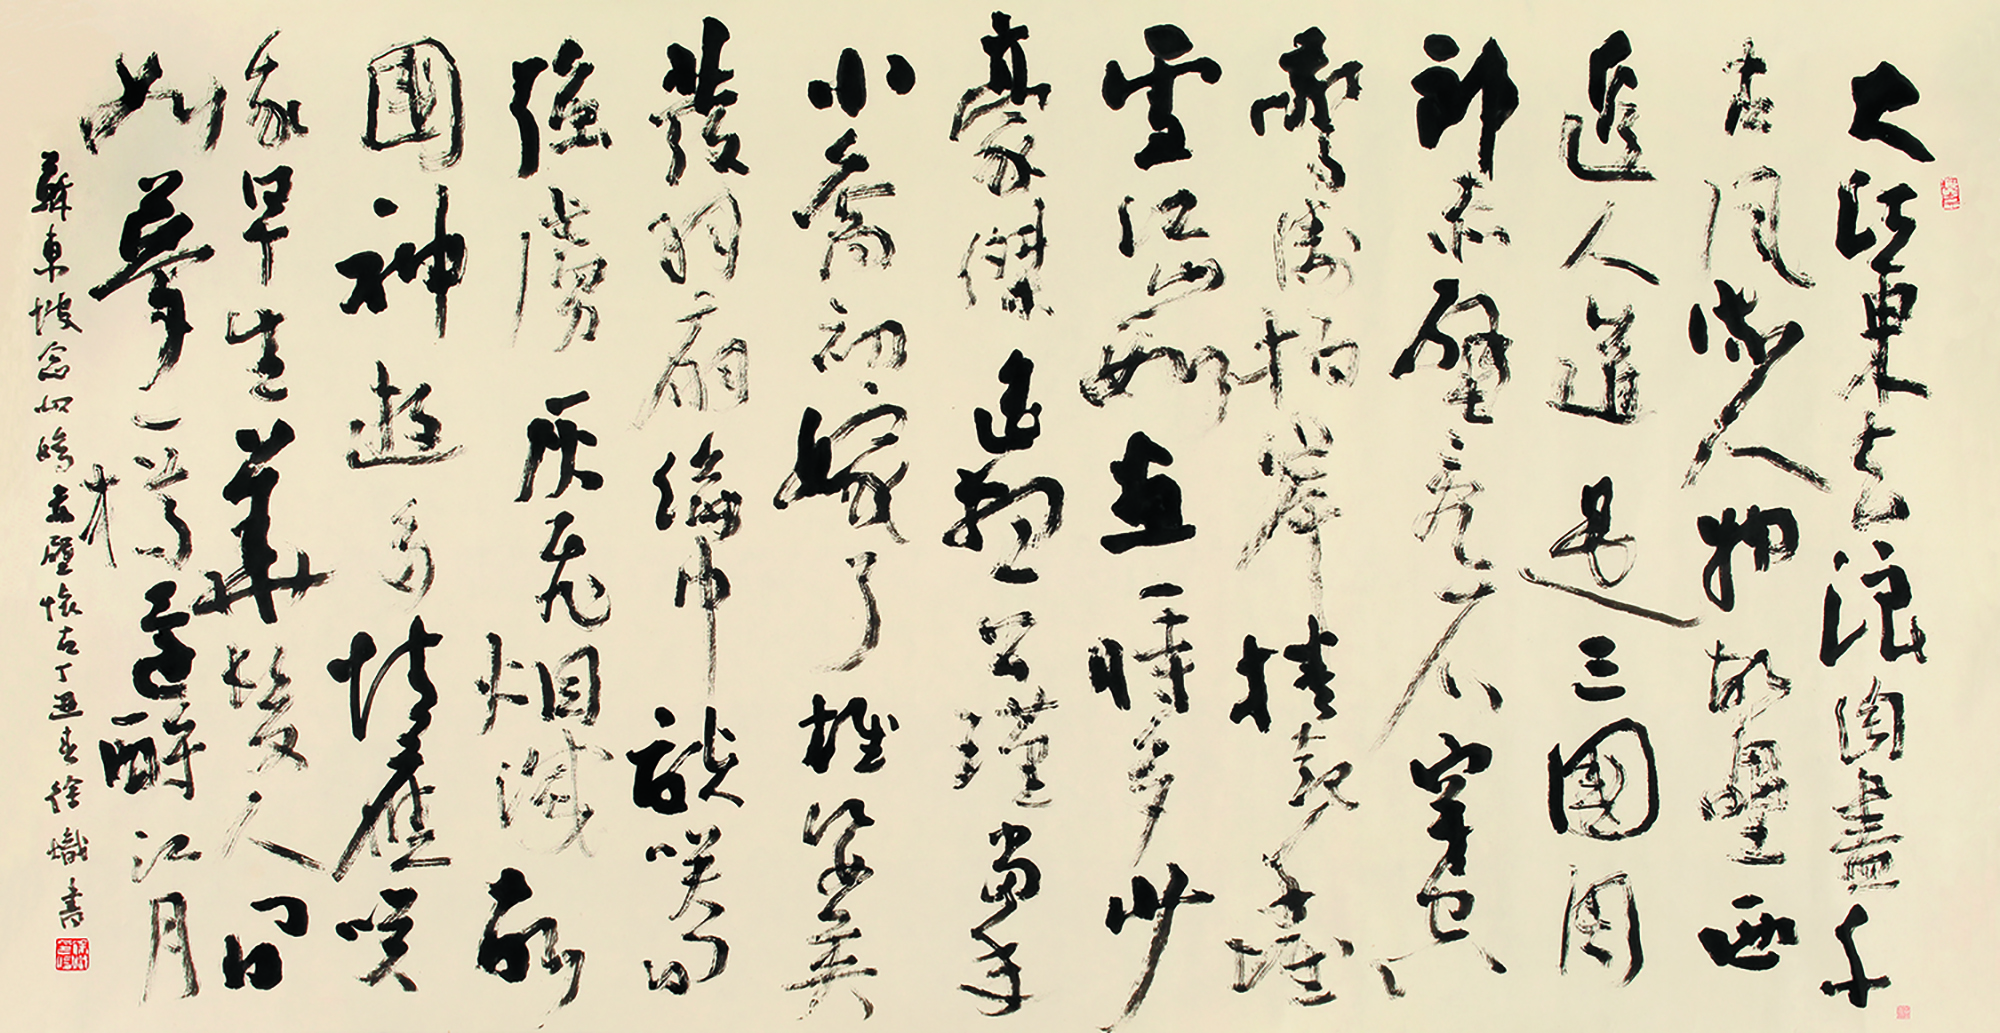 大江東去浪淘盡千
古風流人物故壘西
邊人道是三國周
郎赤壁亂石穿空
驚濤拍岸捲起千堆
雪江山如畫一時多少
豪傑遙想公瑾當年
小喬初嫁了雄姿英
發羽扇綸巾談笑間
強虜灰飛烟滅故
國神遊多情應笑
我早生華髮人間
如夢一樽還酹江月
蘇東坡念奴嬌赤壁懷古丁丑春徐熾書